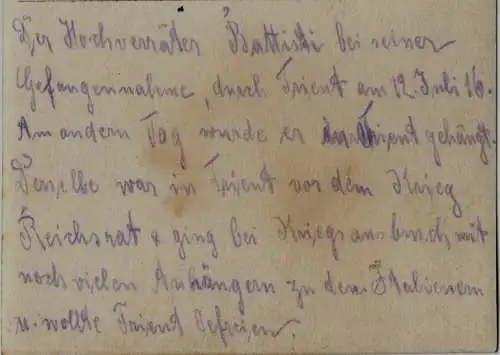 Der Hochverräter Battisti bei seiner
Gefangennahme, durch Trient am 12. Juli 16.
Am andern Tag wurde er in Trient gehängt.
Derselbe war in Trient vor dem Krieg
Reichsrat & ging bei Kriegsausbruch mit
noch vielen Anhängern zu dem Italienern
u. wollte Trient befreien.